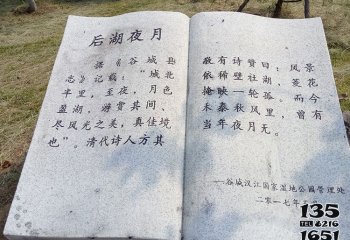 后湖夜月
据《谷城县
志》记载:“城北
半里,至夜,月色
盈湖,游赏其间,
尽风光之美,真佳境
也”。清代诗人方其
敢有诗赞曰:风景
依稀壁社湖,菱花
掩映一轮孤。而今
未秦秋风里,曾有
当年夜月无。
——谷城汉江国家湿地公园管理处
二〇一七年
135
TEL 216
1651